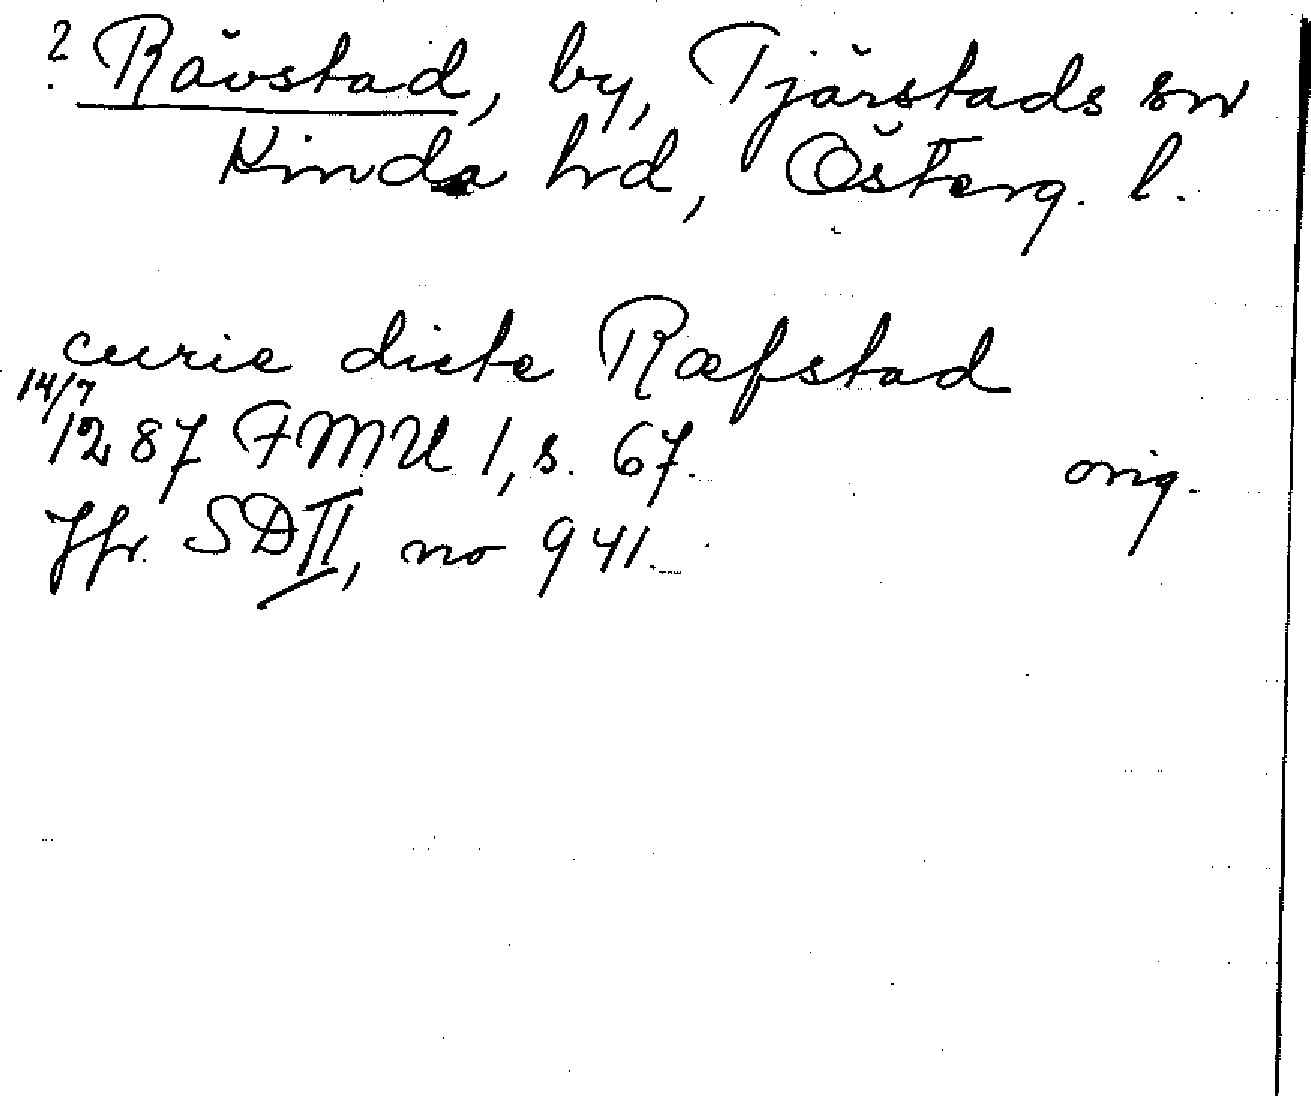 ? Rävstad, by, Tjärstads sn
Kinda hd, Österg. l.
curie dicte Ræfstad
14/7
1287 FMU 1, s. 67. orig.
Jfr. SD II, no 941.